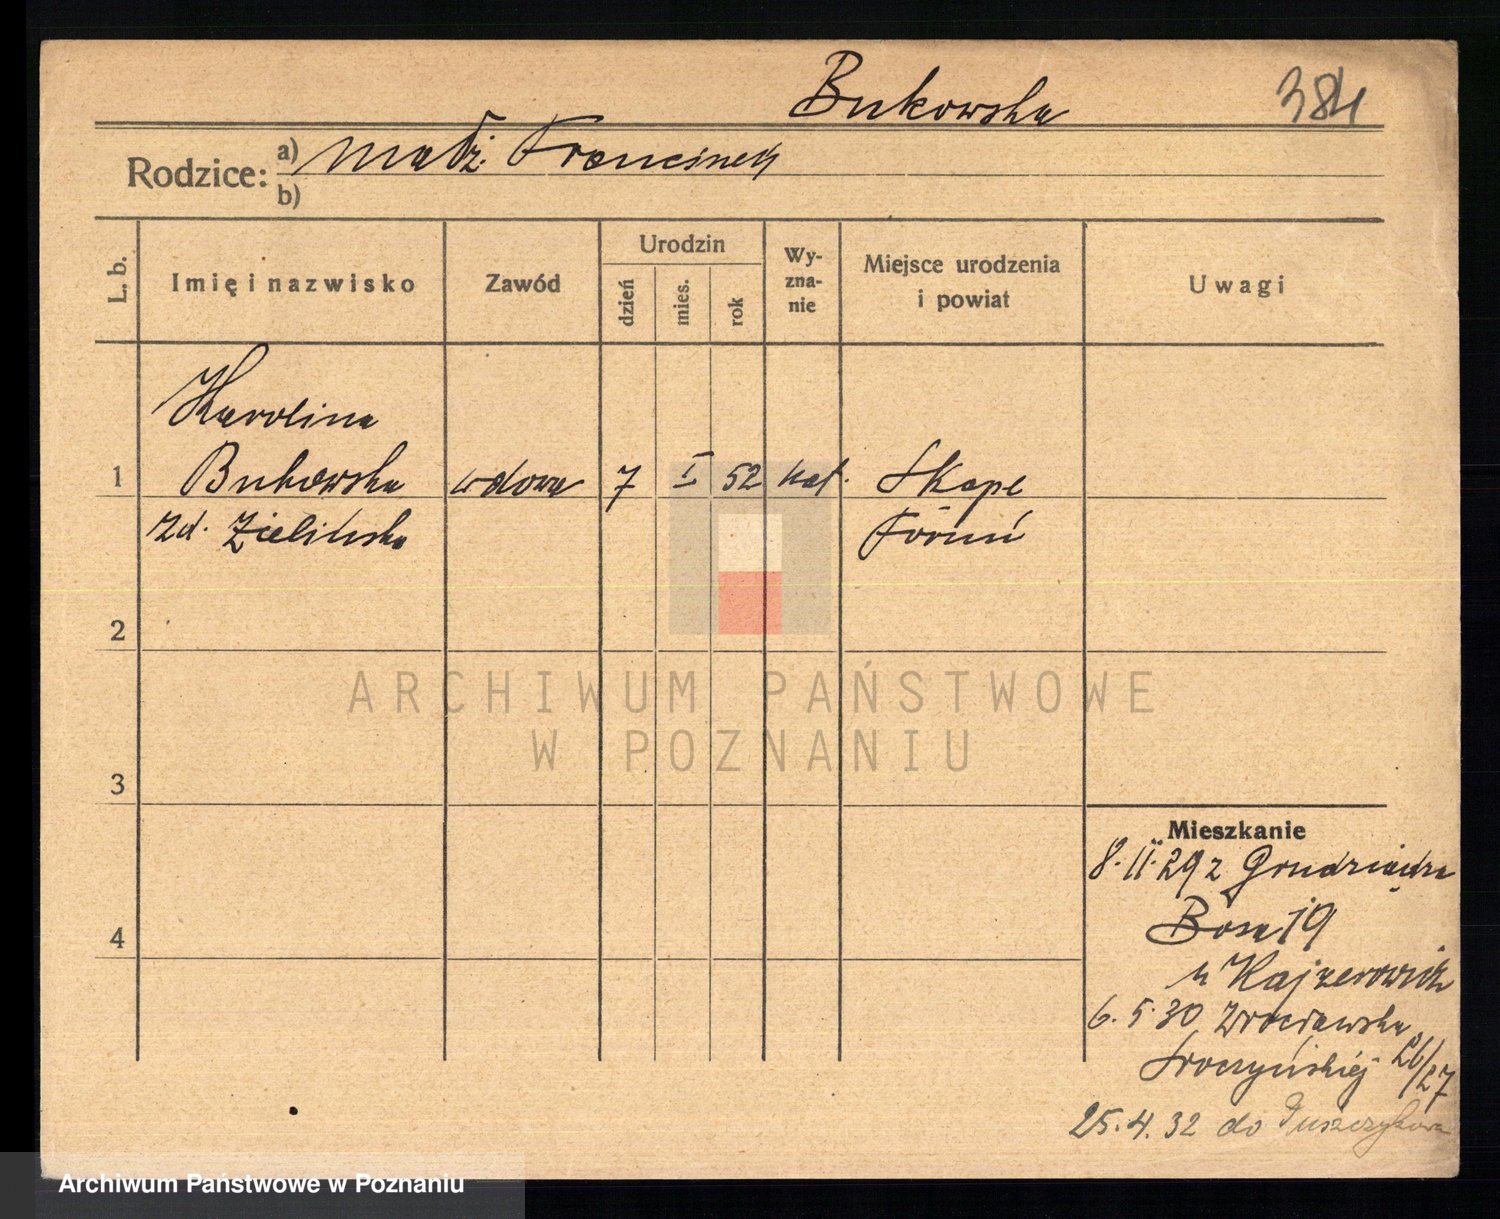 Bukowska 384
Rodzice: a) małż. Franciszek
b)
L. b. Imię i nazwisko Zawód Urodzin dzień mies. rok Wyznanie Miejsce urodzenia i powiat Uwagi
Karolina
1 Bukowska wdowa 7 I 52 kat. Skape
zd. Zielińska Toruń
2
ARCHIWUM PAŃSTWOWE
W POZNANIU
3
Mieszkanie
8. II. 29 z Grudziądza
4 Bosa 19
u Kajzerowicz
6. 5. 30 Wrocławska
26/27
25. 4. 32 do Puszczykowa
Archiwum Państwowe w Poznaniu